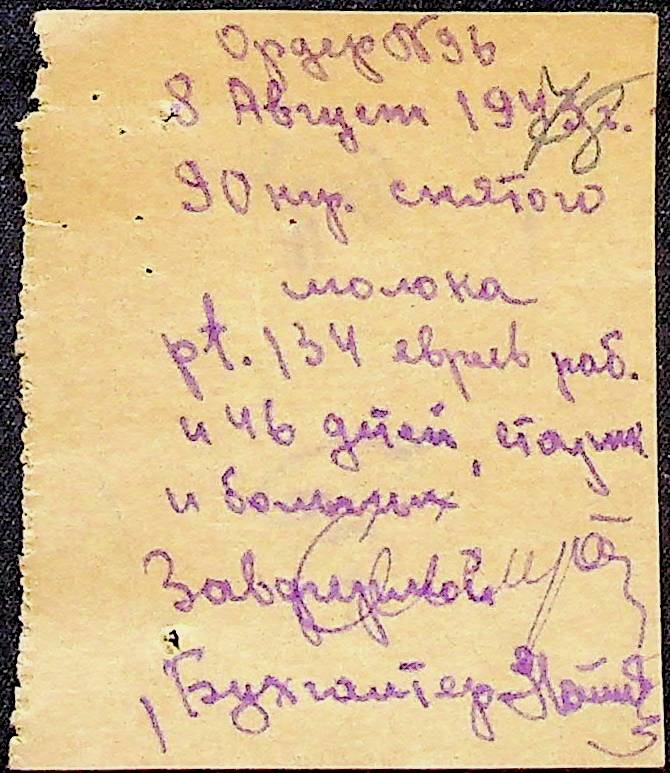 Ордер № 96
8 Август 1943 г.
90 кгр. снятого
молока
pt. 134 евреев раб.
и 46 дтей, старик
и больных
Бухгалтер